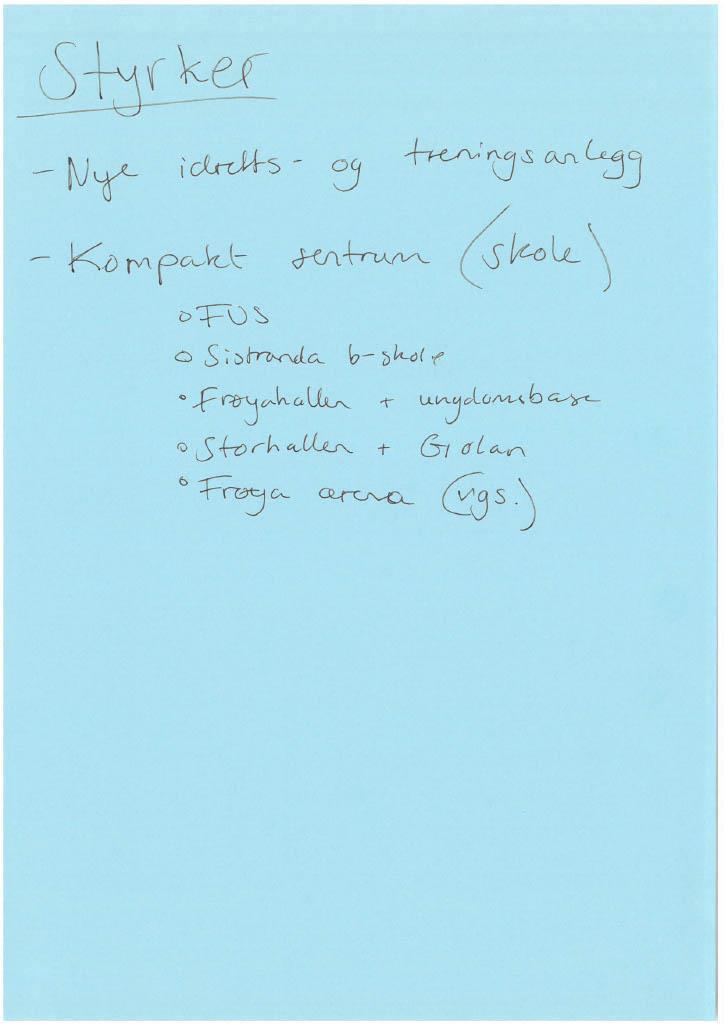 Styrker
- Nye idretts- og treningsanlegg
- Kompakt sentrum (skole)
o FUS
o Sistranda b-skole
• Frøyahallen + ungdomsbase
o Storhallen + Golan
o Frøya arena (vgs.)